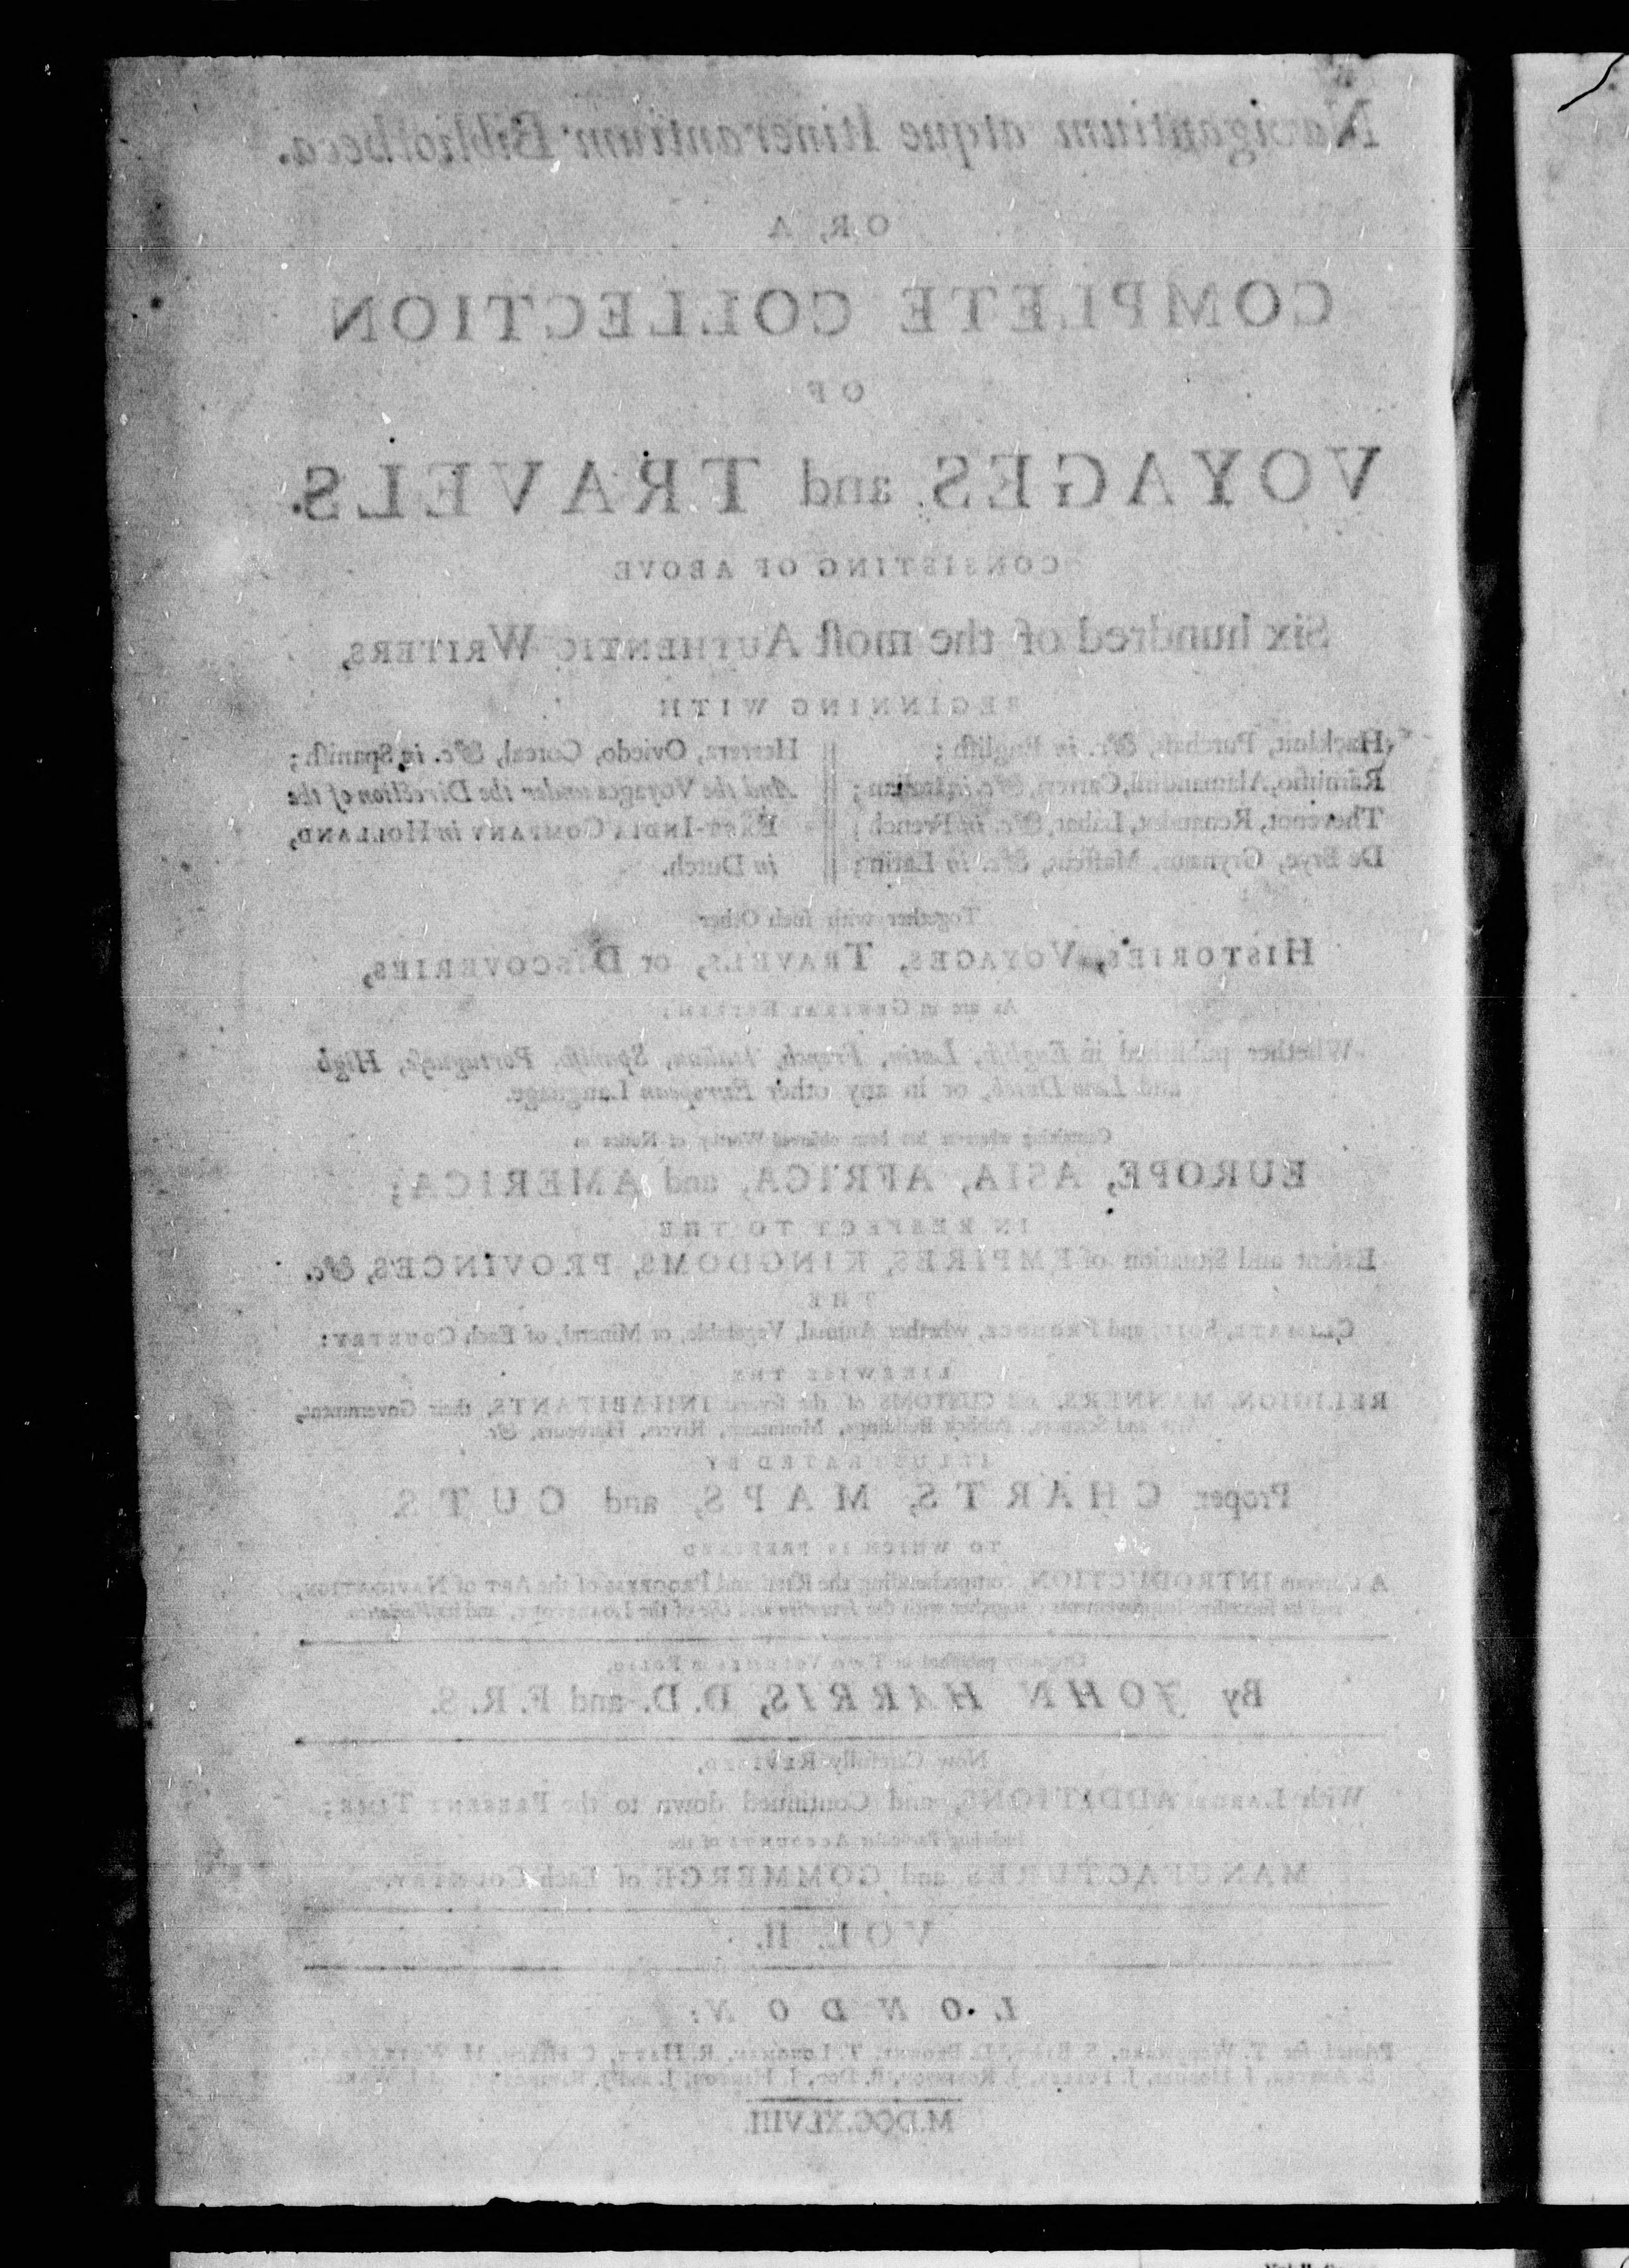 Navigantium atque Itinerantium Bibliotheca.
OR, A
COMPLETE COLLECTION
OF
VOYAGES and TRAVELS.
CONSISTING OF ABOVE
Six hundred of the moſt AUTHENTIC WRITERS,
BEGINNING WITH
Hackluit, Purchaſs, &c. in Engliſh;
Ramuſio, Alamandini, Carreri, &c. in Italian;
Thevenot, Renaudot, Labat, &c. in French;
De Brye, Grynæus, Maffeus, &c. in Latin;
Herrera, Oviedo, Coreal, &c. in Spaniſh;
And the Voyages under the Direction of the
EAST-INDIA COMPANY in HOLLAND,
in Dutch.
Together with ſuch Other
HISTORIES, VOYAGES, TRAVELS, or DISCOVERIES,
As are in GENERAL ESTEEM;
Whether publiſhed in Engliſh, Latin, French, Italian, Spaniſh, Portugueſe, High
and Low Dutch, or in any other European Language.
Containing whatever has been obſerved Worthy of Notice in
EUROPE, ASIA, AFRICA, and AMERICA;
IN RESPECT TO THE
Extent and Situation of EMPIRES, KINGDOMS, PROVINCES, &c.
THE
CLIMATE, SOIL, and PRODUCE, whether Animal, Vegetable, or Mineral, of Each COUNTRY:
LIKEWISE THE
RELIGION, MANNERS, and CUSTOMS of the ſeveral INHABITANTS, their Government,
Arts and Sciences, Publick Buildings, Mountains, Rivers, Harbours, &c.
ILLUSTRATED BY
Proper CHARTS, MAPS, and CUTS.
TO WHICH IS PREFIXED
A Copious INTRODUCTION, comprehending the RISE and PROGRESS of the ART of NAVIGATION,
and its ſucceſſive Improvements; together with the Invention and Uſe of the LOADSTONE, and its Variation.
Originally publiſhed in TWO VOLUMES in FOLIO,
By JOHN HARRIS, D. D. and F. R. S.
Now Carefully REVISED,
With LARGE ADDITIONS, and Continued down to the PRESENT TIME;
Including Particular ACCOUNTS of the
MANUFACTURES and COMMERCE of Each COUNTRY.
VOL. II.
LONDON:
Printed for T. WOODWARD, S. BIRT, D. BROWNE, T. LONGMAN, R. HETT, C. HITCH, H. WHITRIDGE,
J. HODGES, J. ROBINSON, B. DOD,
M.DCC.XLVIII.